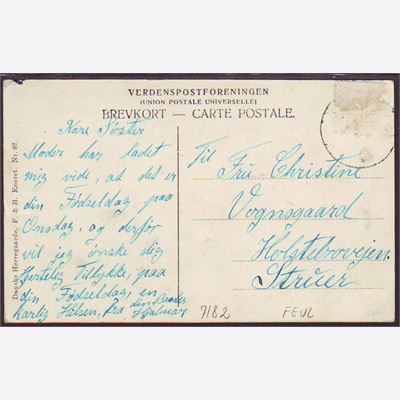 VERDENSPOSTFORENINGEN
(UNION POSTALE UNIVERSELLE)
BREVKORT — CARTE POSTALE.
Danske Herregaarde, F. & B. Eneret. Nr. 87.
Kære Søster
Moder har ladet
mig vide, at det er
din Fødselsdag paa
Onsdag, og derfor
vil jeg ønske dig
hjertelig Tillykke, paa
din Fødselsdag, en
kærlig Hilsen, fra din Broder
Hjalmar
Til
Fru Christine
Vognsgaard
Holstebrovejen
Struer
7182
FEUL